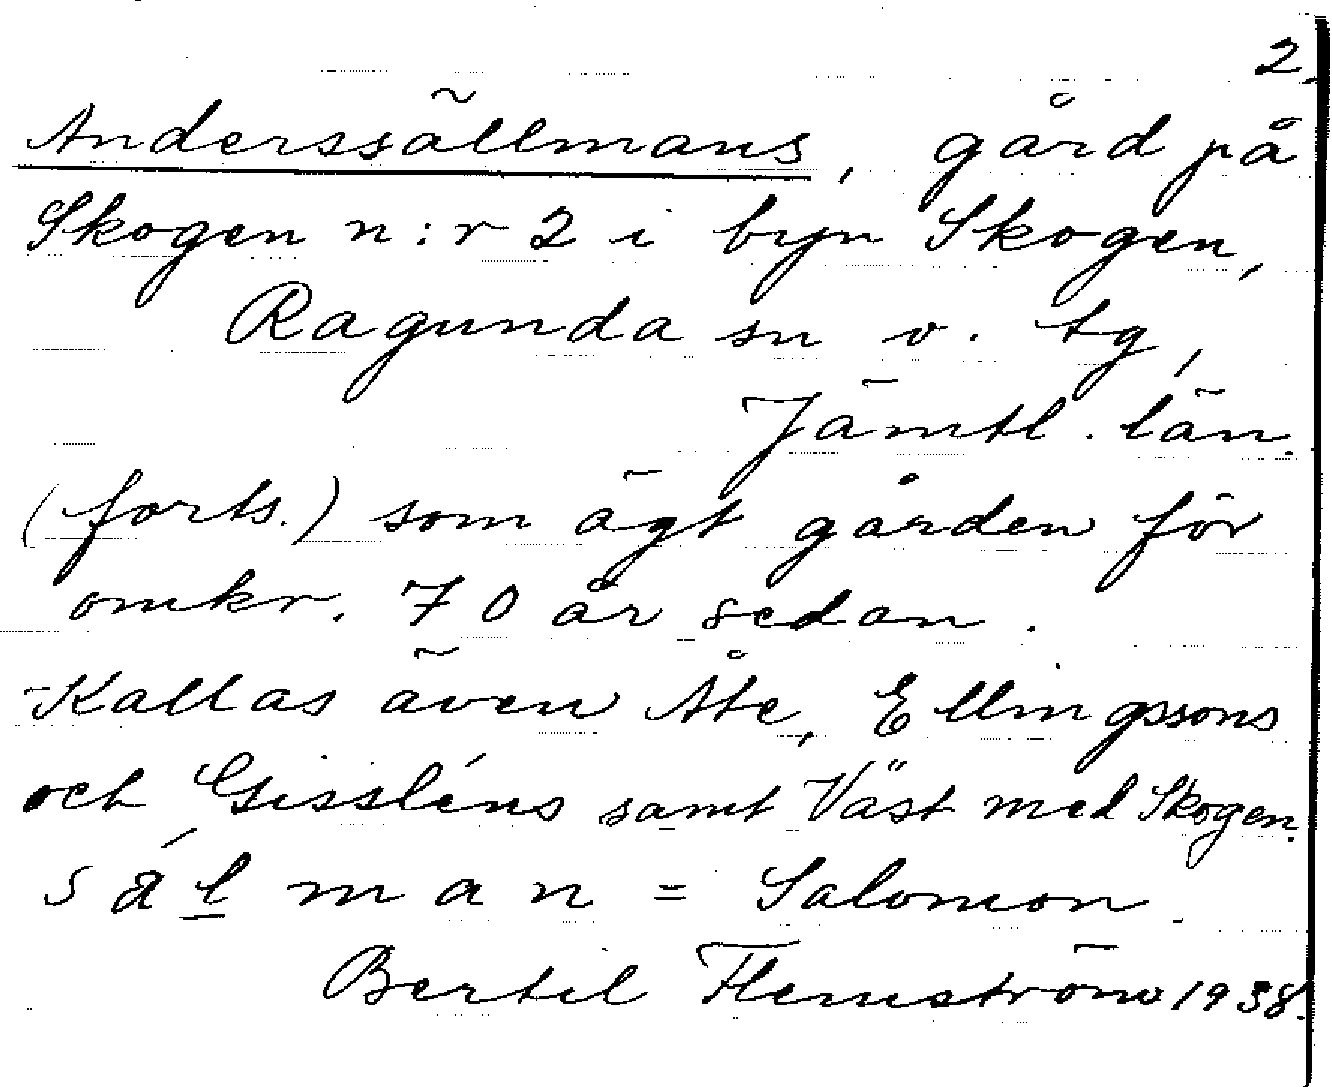 2.
Anderssällmans, gård på
Skogen n:r 2 i byn Skogen,
Ragunda sn o. tg,
Jämtl. län.
(forts.) som ägt gården för
omkr. 70 år sedan.
Kallas även Åte, Ellingssons
och Gissléns samt Väst med Skogen.
sálman = Salomon.
Bertil Flemström 1938.